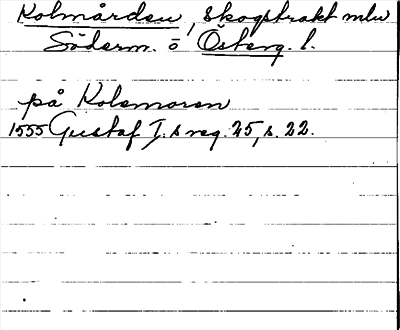 Kolmården, skogstrakt mln
Söderm. o Österg. l.
på Kolemoren
1555 Gustaf I:s reg. 25, s. 22.